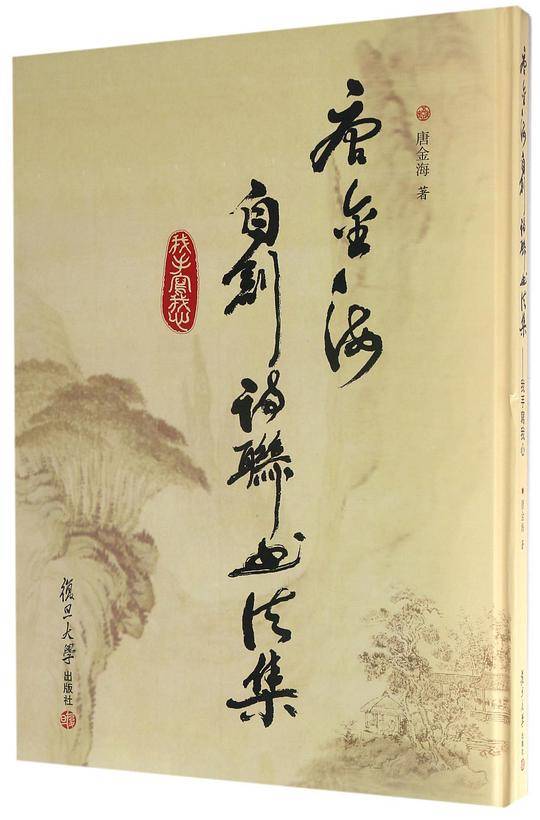 唐金海
自創詩聯书法集
我手寫我心
唐金海 著
復旦大學出版社
唐金海自創詩聯书法集——我手寫我心
唐金海 著
復旦大學出版社